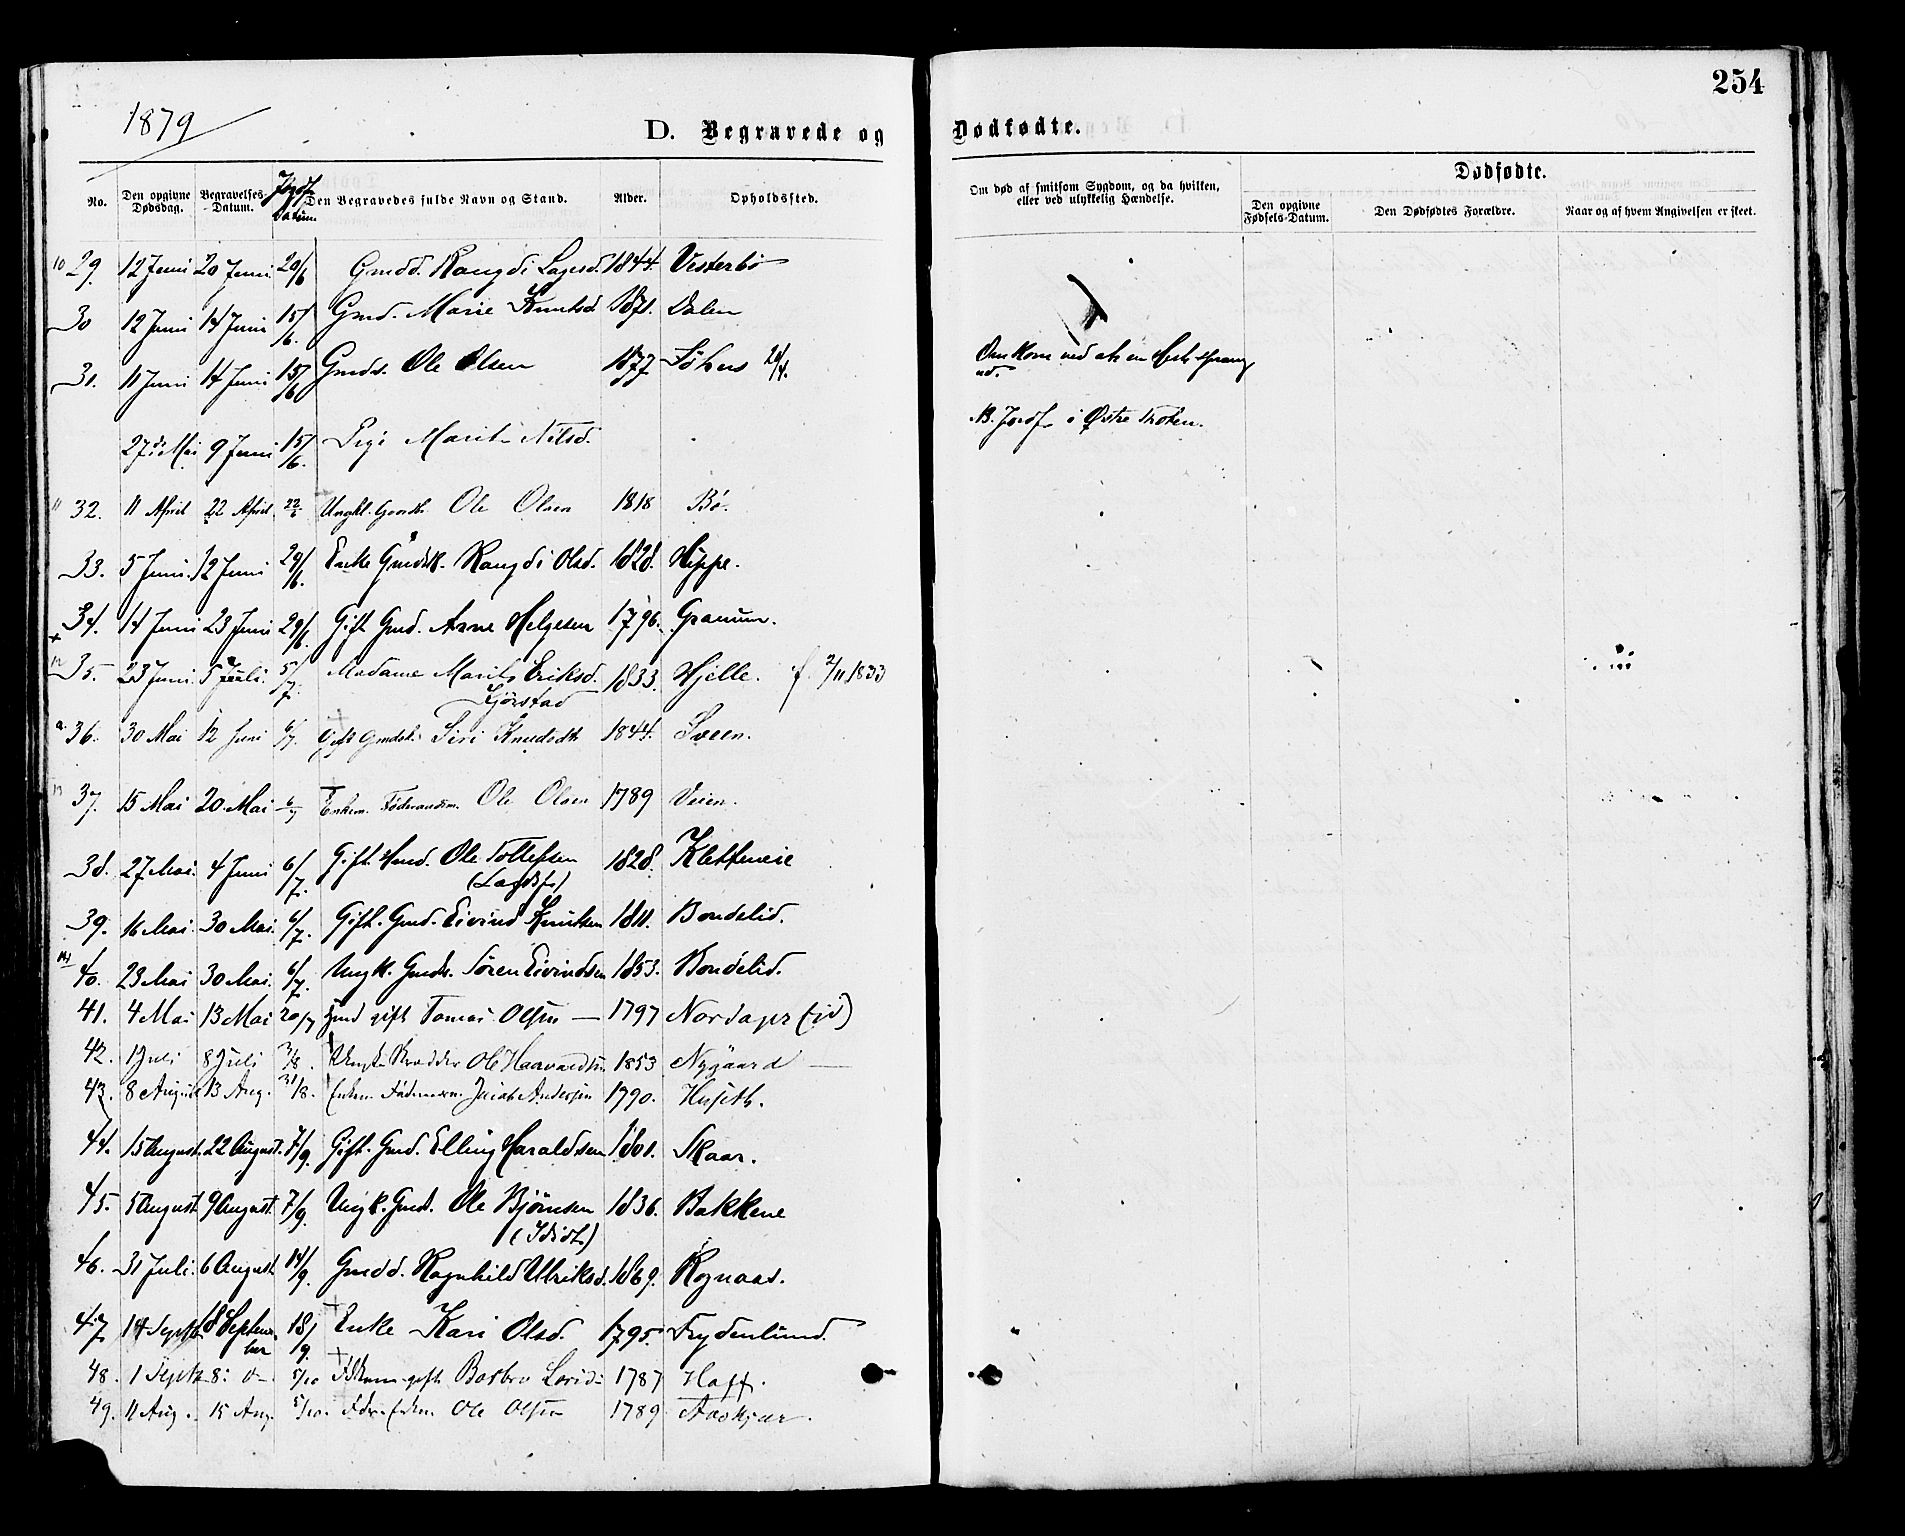 254
1879
D. Begravede og Dødfødte.
No. Den opgivne Dødsdag. Begravelses-Datum. Jordf. Datum. Den Begravedes fulde Navn og Stand. Alder. Opholdssted. Om død af smitsom Sygdom, og da hvilken, eller ved ulykkelig Hændelse. Dødfødte. Den opgivne Fødsels-Datum. Den Dødfødtes Forældre. Naar og af hvem Angivelsen er skeet.
10 29. 12 Juni 20 Juni 20/6 Gmdd. Rangdi Lagesd. 1844. Vesterbø
30 12 Juni 14 Juni 15/6. Gmd. Marie Knutsd. Dalen
31. 11 Juni 14 Juni 15/6 Gmds. Ole Olsen 1877 Omkom ved at en
27de Mai 9 Juni 15/6. Pige Marit Nilsd. NB. Jordf. i Østre Thoten.
11 32. 11 April 22 April 22/6 Ungkl. Gaardb. Ole Olsen 1818 Bø.
33. 5 Juni. 12 Juni 29/6. Enke Gmdsk. Rangdi Olsd. 1828. Hippe.
+ 34. 14 Juni 23 Juni 29/6. Gift Gmd. Arne Helgesen 1796. Granum.
12 35. 23 Juni 5 Juli. 5/7. Madame Marit Eriksd. 1833. Hjelle. f. 2/11 1833
Fjørstad
36. 30 Mai 12 Juni 6/7. Gift Gmdsk. Siri Knudsdt 1844. Sveen.
13 37. 15 Mai 20 Mai 6/7 Enkem. Føderaadsm. Ole Olsen 1789 Veien.
38. 27 Mai. 4 Juni 6/7. Gift Gmd. Ole Tollefsen 1828. Kletteneie
(Lagdsf.)
39. 16 Mai 30 Mai. 6/7. Gift. Gmd. Eivind Knutsen 1811. Bondelid.
14 40. 23 Mai 30 Mai. 6/7. Ungk. Gmds. Søren Eivindsen 1853. Bondelid.
41. 4 Mai 13 Mai 20/7 Gmd gift Tomas Olsen — 1797
42. 1 Juli 8 Juli 3/8. Ungk. Skrædder Ole Haavardsen 1853 Nygaard —
43. 8 August 13 Aug. 31/8. Enkem. Fødermn. Jacob Andersen 1790. Huseth.
44. 15 August. 22 August. 7/9. Gift. Gmd. Elling Haraldsen 1801. Skaar.
45. 5 August 9 August. 7/9. Ungk. Gmd. Ole Bjørnsen 1836. Bakkene
(Idiot.)
46. 31 Juli. 6 August 14/9. Gmdd. Ragnhild Ulriksd. 1869. Rognaas.
47. 14 Septbr. 18 September 18/9. Enke Kari Olsd. 1795. Frydenlund.
48. 1 Septb 8: d— 5/10 gift Barbro 1787 Hoff.
49. 11 Aug. 15 Aug. 5/10. Fdr. Enkem. Ole Olsen 1789